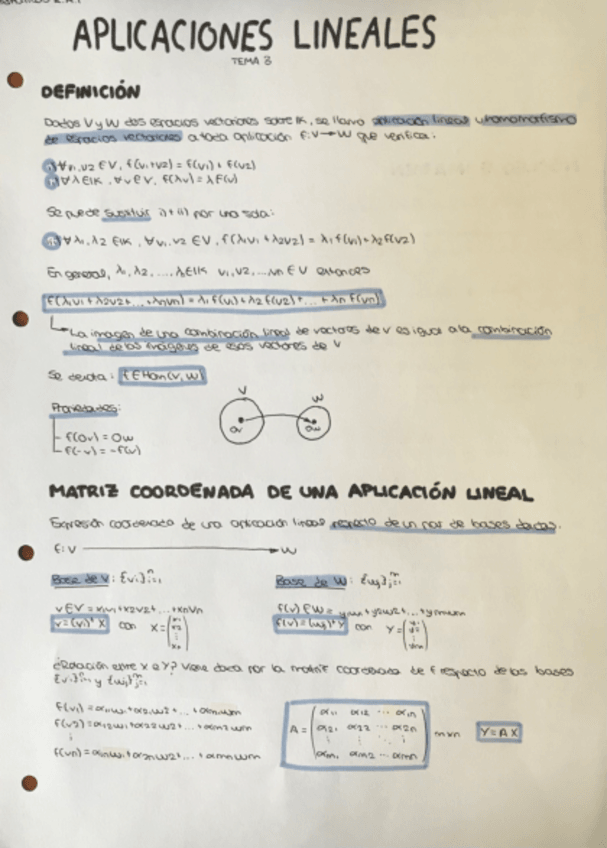 APLICACIONES LINEALES
TEMA 3
DEFINICIÓN
Dados V y W dos espacios vectoriales sobre IK, se llama aplicación lineal u homomorfismo
de espacios vectoriales a toda aplicación f: V → W que verifica:
i) ∀v1, v2 ∈ V, f(v1+v2) = f(v1) + f(v2)
ii) ∀λ ∈ IK, ∀v ∈ V, f(λv) = λf(v)
Se puede sustituir i) + ii) por una sola:
∀λ1, λ2 ∈ IK, ∀v1, v2 ∈ V, f(λ1v1 + λ2v2) = λ1f(v1) + λ2f(v2)
En general, λ1, λ2, ..., λn ∈ IK v1, v2, ... vn ∈ V entonces
f(λ1v1 + λ2v2 + ... + λnvn) = λ1f(v1) + λ2f(v2) + ... + λnf(vn)
La imagen de una combinación lineal de vectores de V es igual a la combinación
lineal de las imágenes de esos vectores de V
Se denota: f ∈ Hom(V, W)
Propiedades:
f(0v) = 0w
f(-v) = -f(v)
V W
0v 0w
MATRIZ COORDENADA DE UNA APLICACIÓN LINEAL
Expresión coordenada de una aplicación lineal respecto de un par de bases dadas.
f: V → W
Base de V: {vi}ⁿi=1 Base de W: {wj}ᵐj=1
v ∈ V = x1v1 + x2v2 + ... + xnvn f(v) ∈ W = y1w1 + y2w2 + ... + ymwm
v = (vi)ᵗ X con X = (x1 x2 ⋮ xn) f(v) = (wj)ᵗ Y con Y = (y1 ⋮ ym)
¿Relación entre X e Y? Viene dada por la matriz coordenada de f respecto de las bases
{vi}ⁿi=1 y {wj}ᵐj=1
f(v1) = α11w1 + α21w2 + ... + αm1wm
f(v2) = α12w1 + α22w2 + ... + αm2wm
⋮
f(vn) = α1nw1 + α2nw2 + ... + αmnwm
A = (α11 α12 ... α1n
α21 α22 ... α2n
⋮ ⋮ ⋱ ⋮
αm1 αm2 ... αmn) mxn Y = AX